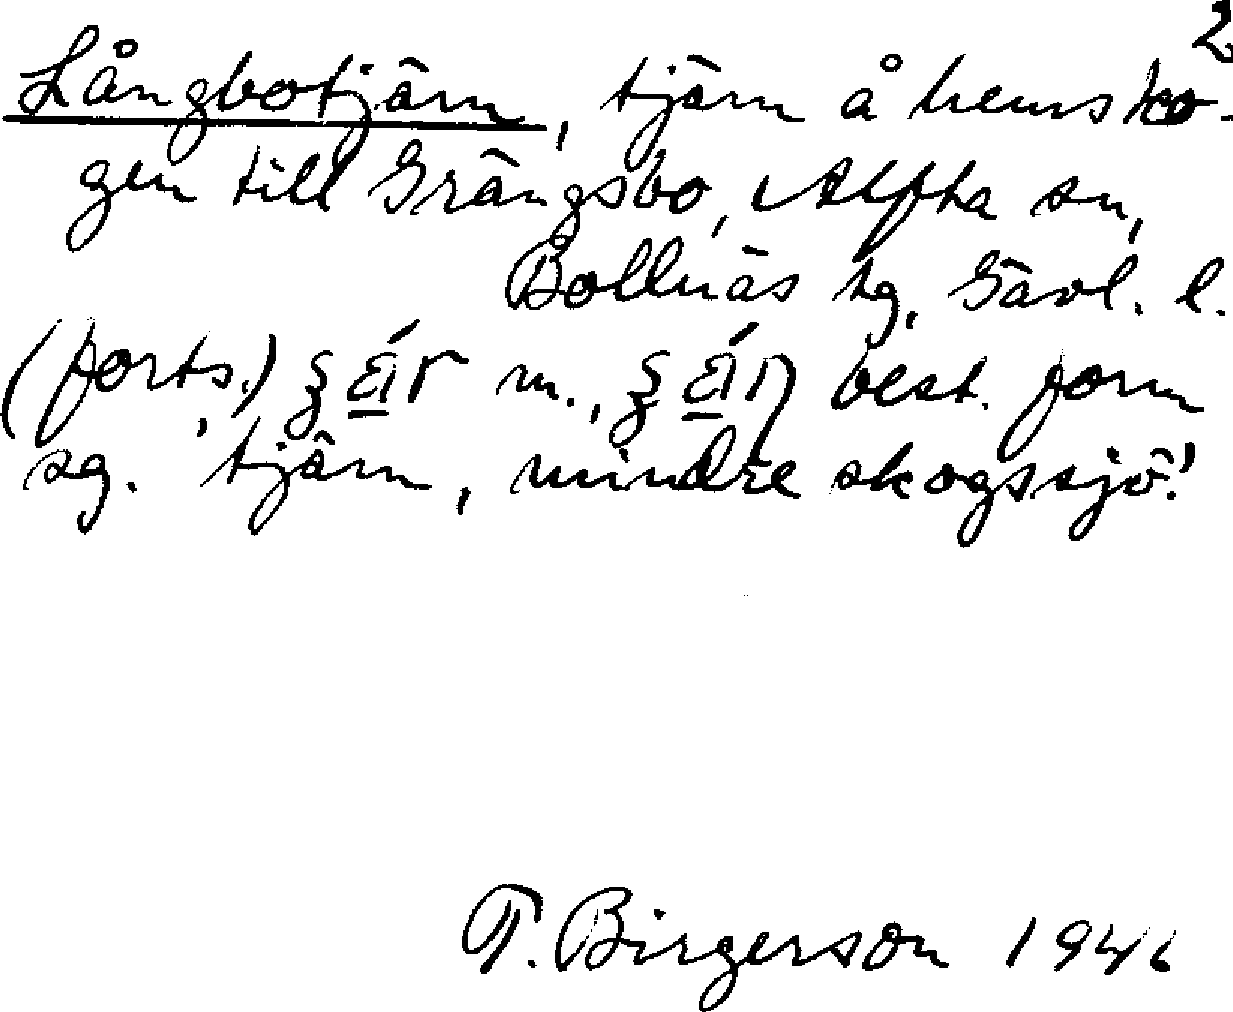 2
Långbotjärn, tjärn å hemsko-
gen till Grängsbo, Alfta sn,
Bollnäs tg, Gävl. l.
(forts.) m., best. form
sg. 'tjärn, mindre skogssjö'.
T. Birgerson 1946